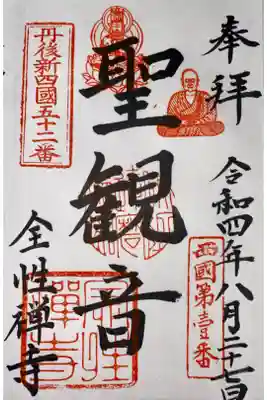 奉拝
令和四年八月二十七日
西國第壹番
聖観音
丹後新四國五十二番
全性禅寺